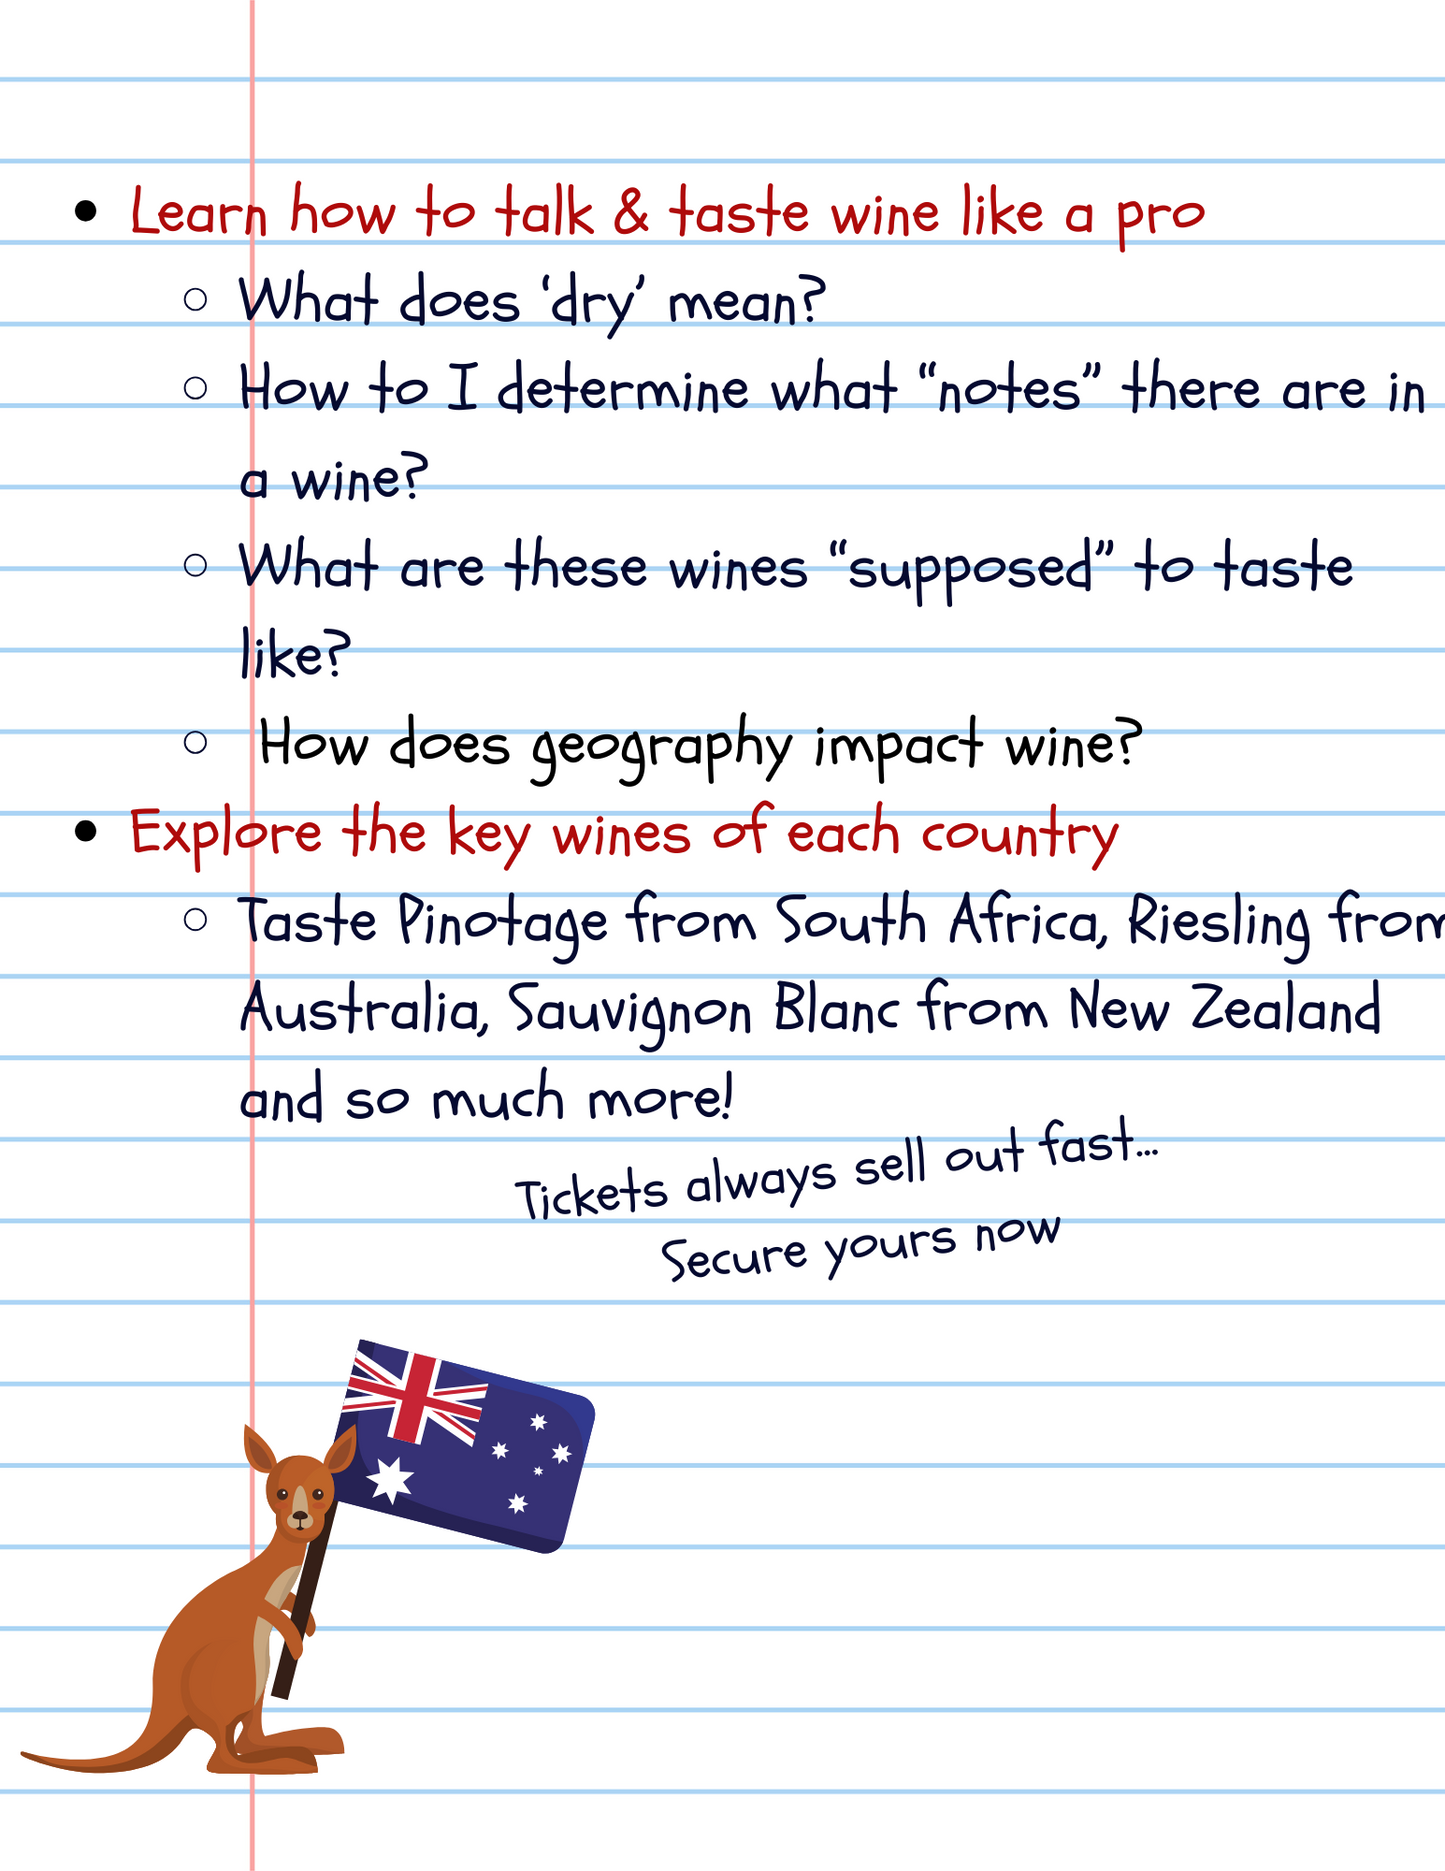 • Learn how to talk & taste wine like a pro
○ What does ‘dry’ mean?
○ How to I determine what “notes” there are in
a wine?
○ What are these wines “supposed” to taste
like?
○ How does geography impact wine?
• Explore the key wines of each country
○ Taste Pinotage from South Africa, Riesling from
Australia, Sauvignon Blanc from New Zealand
and so much more!
Tickets always sell out fast...
Secure yours now